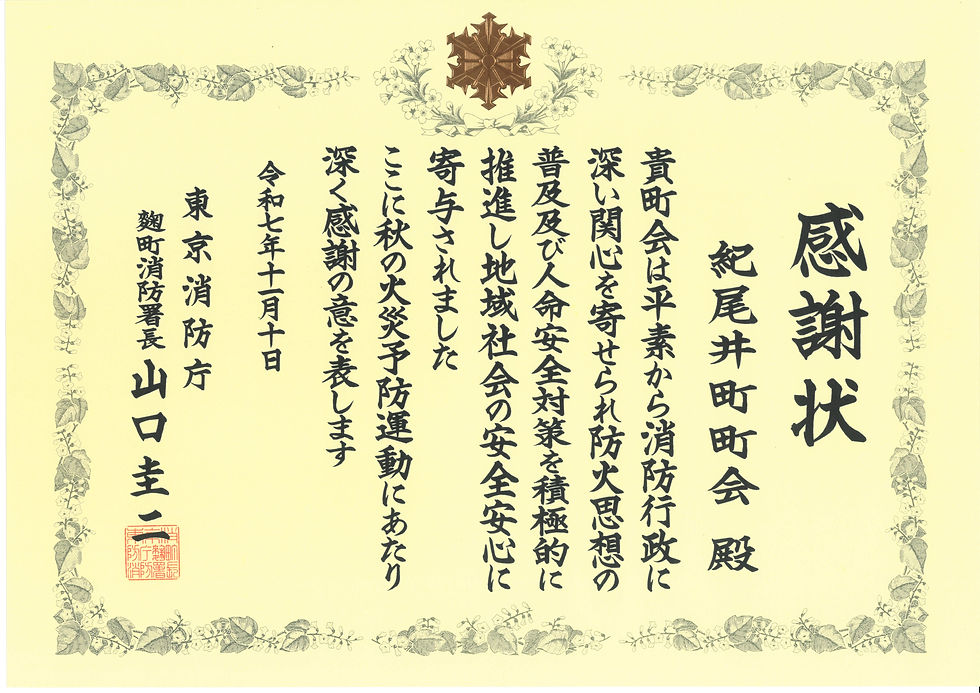 感謝状
紀尾井町町会 殿
貴町会は平素から消防行政に
深い関心を寄せられ防火思想の
普及及び人命安全対策を積極的に
推進し地域社会の安全安心に
寄与されました
ここに秋の火災予防運動にあたり
深く感謝の意を表します
令和七年十一月十日
東京消防庁
麴町消防署長 山口圭二